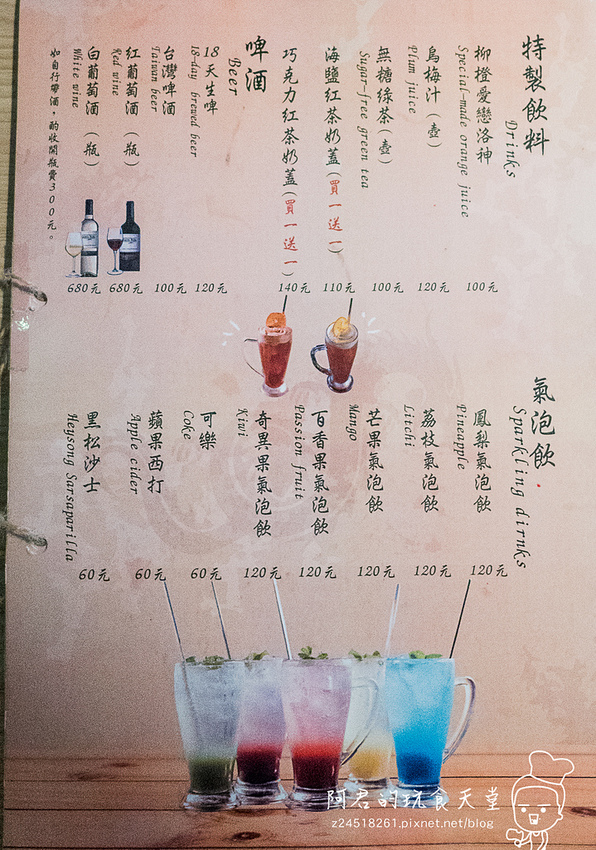 特製飲料
Drinks
柳橙愛戀洛神
Special-made orange juice
100元
烏梅汁（壺）
Plum juice
120元
無糖綠茶（壺）
Sugar-free green tea
100元
海鹽紅茶奶蓋（買一送一）
110元
巧克力紅茶奶蓋（買一送一）
140元
啤酒
Beer
18天生啤
18-day brewed beer
120元
台灣啤酒
Taiwan beer
100元
紅葡萄酒（瓶）
Red wine
680元
白葡萄酒（瓶）
White wine
680元
如自行帶酒，酌收開瓶費300元。
氣泡飲
Sparkling dirnks
鳳梨氣泡飲
Pineapple
120元
荔枝氣泡飲
Litchi
120元
芒果氣泡飲
Mango
120元
百香果氣泡飲
Passion fruit
120元
奇異果氣泡飲
Kiwi
120元
可樂
Coke
60元
蘋果西打
Apple cider
60元
黑松沙士
Heysong Sarsaparilla
60元
阿君的玩食天堂
z24518261.pixnet.net/blog